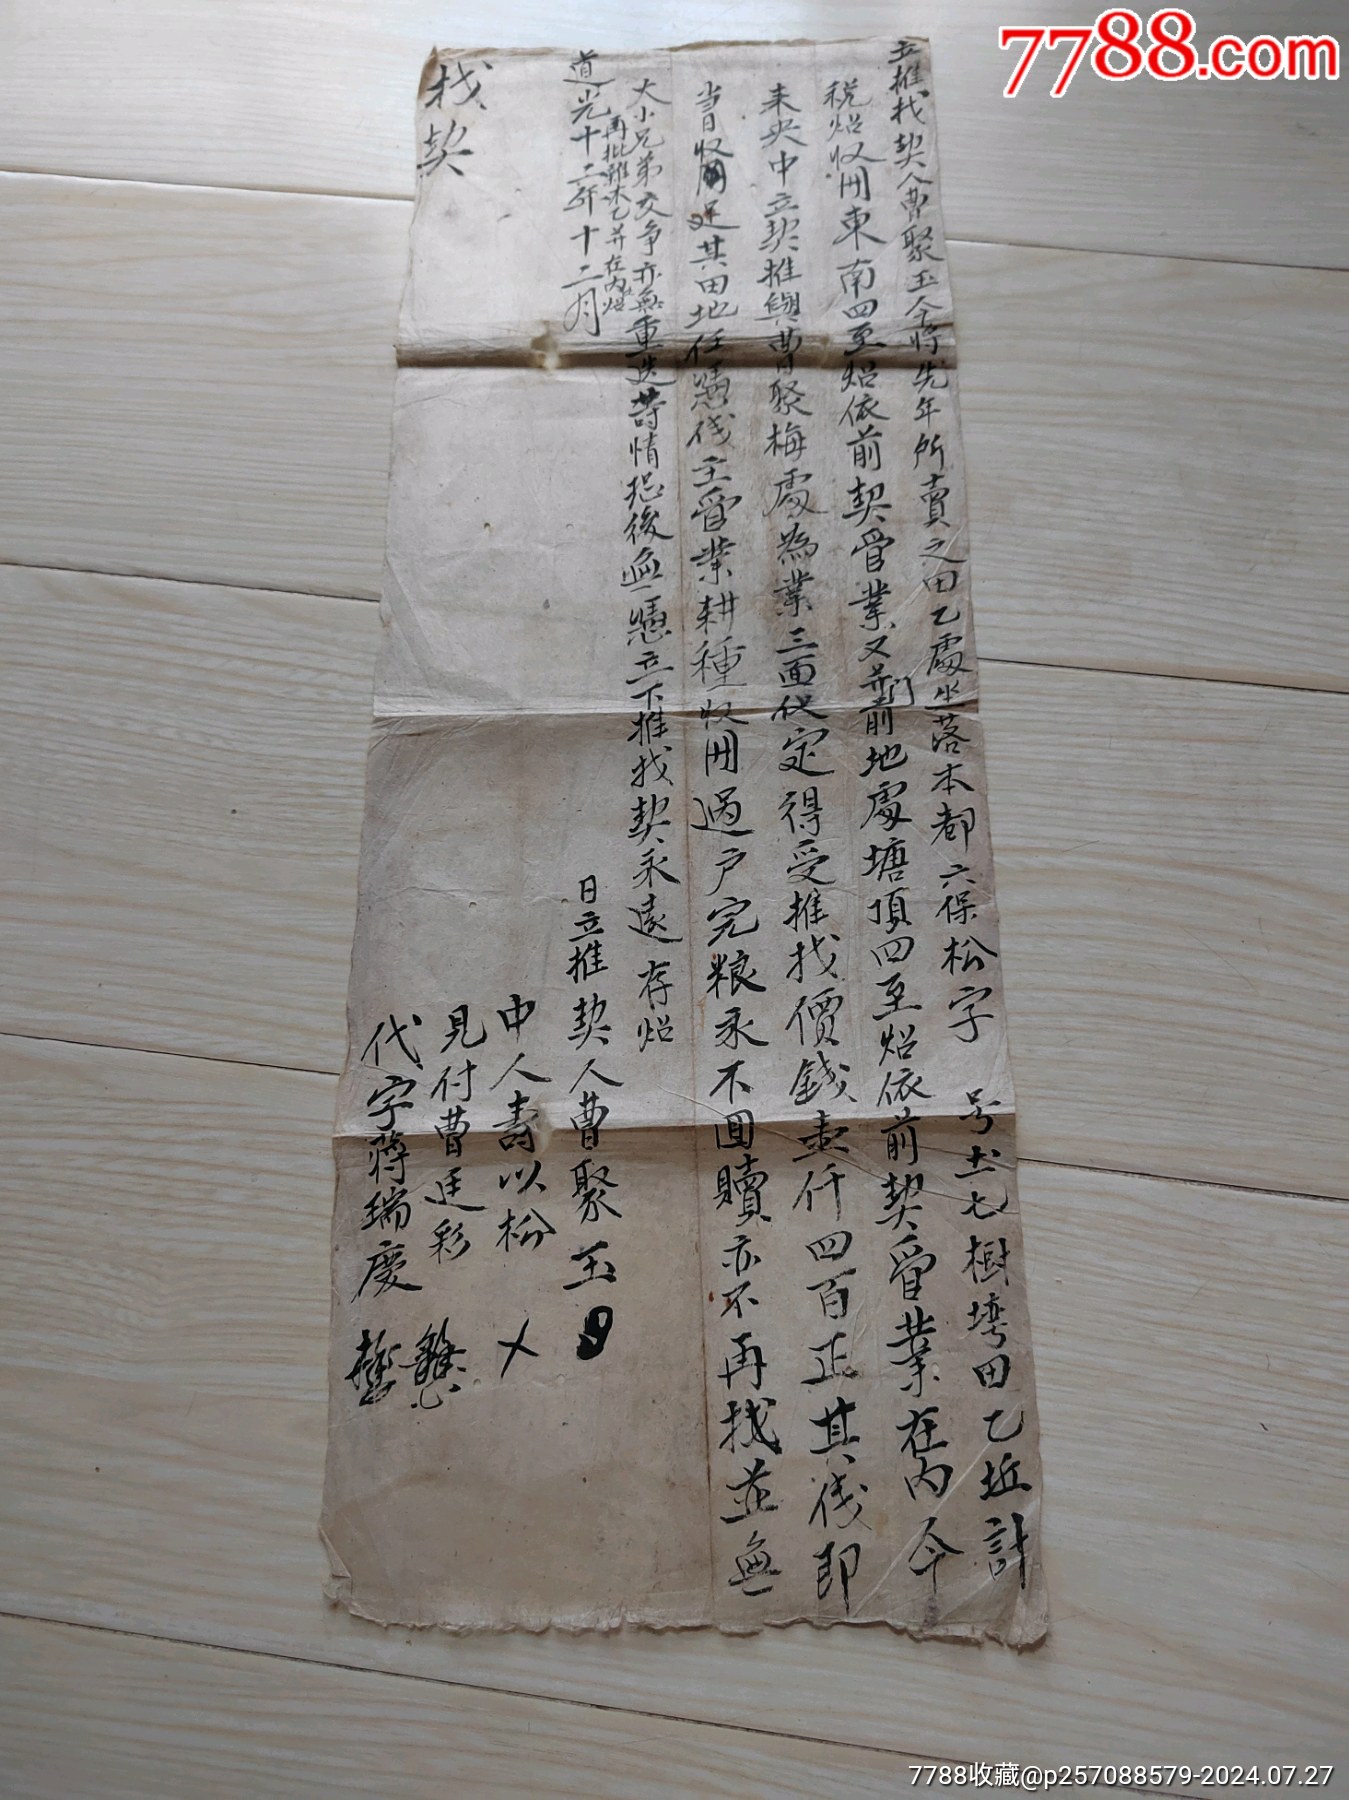 7788.com
立推找契人曹聚玉今將先年所賣之田乙處坐落本都六保松字 号土七樹塆田乙坵計
税炤收用東南四至炤依前契管業又并門前地處塘頂四至炤依前契管業在内今
未央中立契推與曹聚梅處為業三面伐定得受推找價錢壹仟四百正其伐即
當日收用足其田地任憑伐主管業耕種收用過户完粮永不囬贖亦不再找並無
大小兄弟交争亦無重迭等情恐後無憑立下推找契永遠存炤
再批雜木乙并在内炤
道光十二年十二月 日立推契人曹聚玉
中人壽以松
見付曹廷彩
代字蔣瑞慶
找契
7788收藏@p257088579-2024.07.27